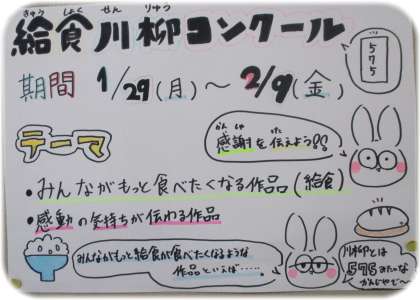 きゅう しょく せん りゅう
給食川柳コンクール
期間 1/29(月)〜2/9(金)
575
テーマ
かん しゃ つた
感謝を伝えよう!!
・みんながもっと食べたくなる作品(給食)
・感動の気持ちが伝わる作品
みんながもっと給食が食べたくなるような
作品といえば……
川柳とは
575みたいな
かんじやで〜